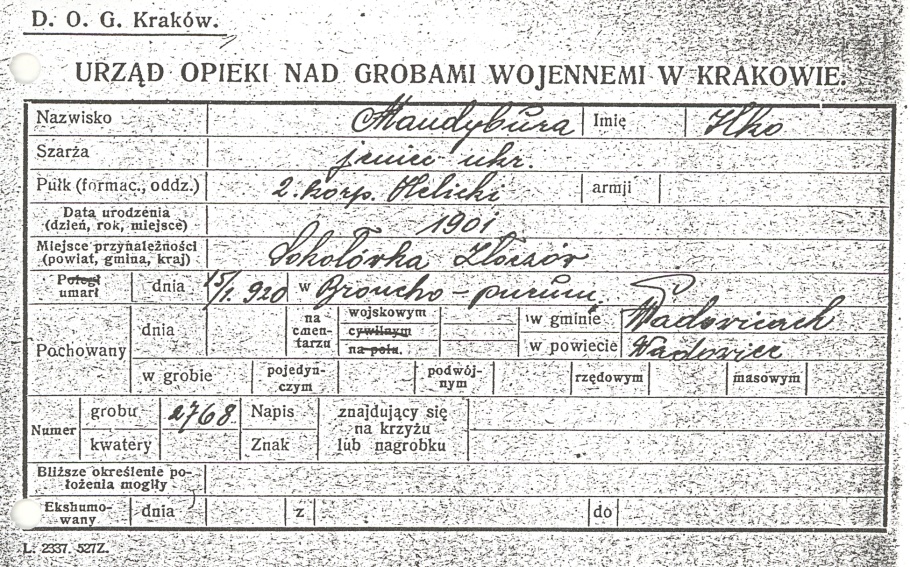 D. O. G. Kraków.
URZĄD OPIEKI NAD GROBAMI WOJENNEMI W KRAKOWIE.
Nazwisko Mandybura Imię Ilko
Szarża jeniec ukr.
Pułk (formac., oddz.) 2. korp. Halicki armji
Data urodzenia
(dzień, rok, miejsce) 1901
Miejsce przynależności
(powiat, gmina, kraj) Sokołówka Złoczów
Poległ
umarł dnia 15/1. 920 w Broncho-pneum.
Pochowany dnia na cmen-
tarzu wojskowym
cywilnym
na polu. w gminie Wadowicach
w powiecie Wadowice
w grobie pojedyń-
czym podwój-
nym rzędowym masowym
Numer grobu 2768. Napis znajdujący się
kwatery Znak na krzyżu
lub nagrobku
Bliższe określenie po-
łożenia mogiły
Ekshumo-
wany dnia z do
L. 2337. 527Z.